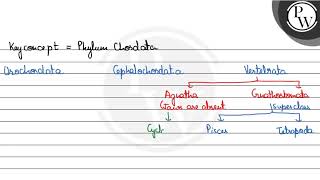 PW
Key concept = Phylum Chordata
Urochordata Cephalochordata Vertebrata
Agnatha Gnathostomata
(Jaws are absent (superclass
Cycl Pisces Tetrapoda